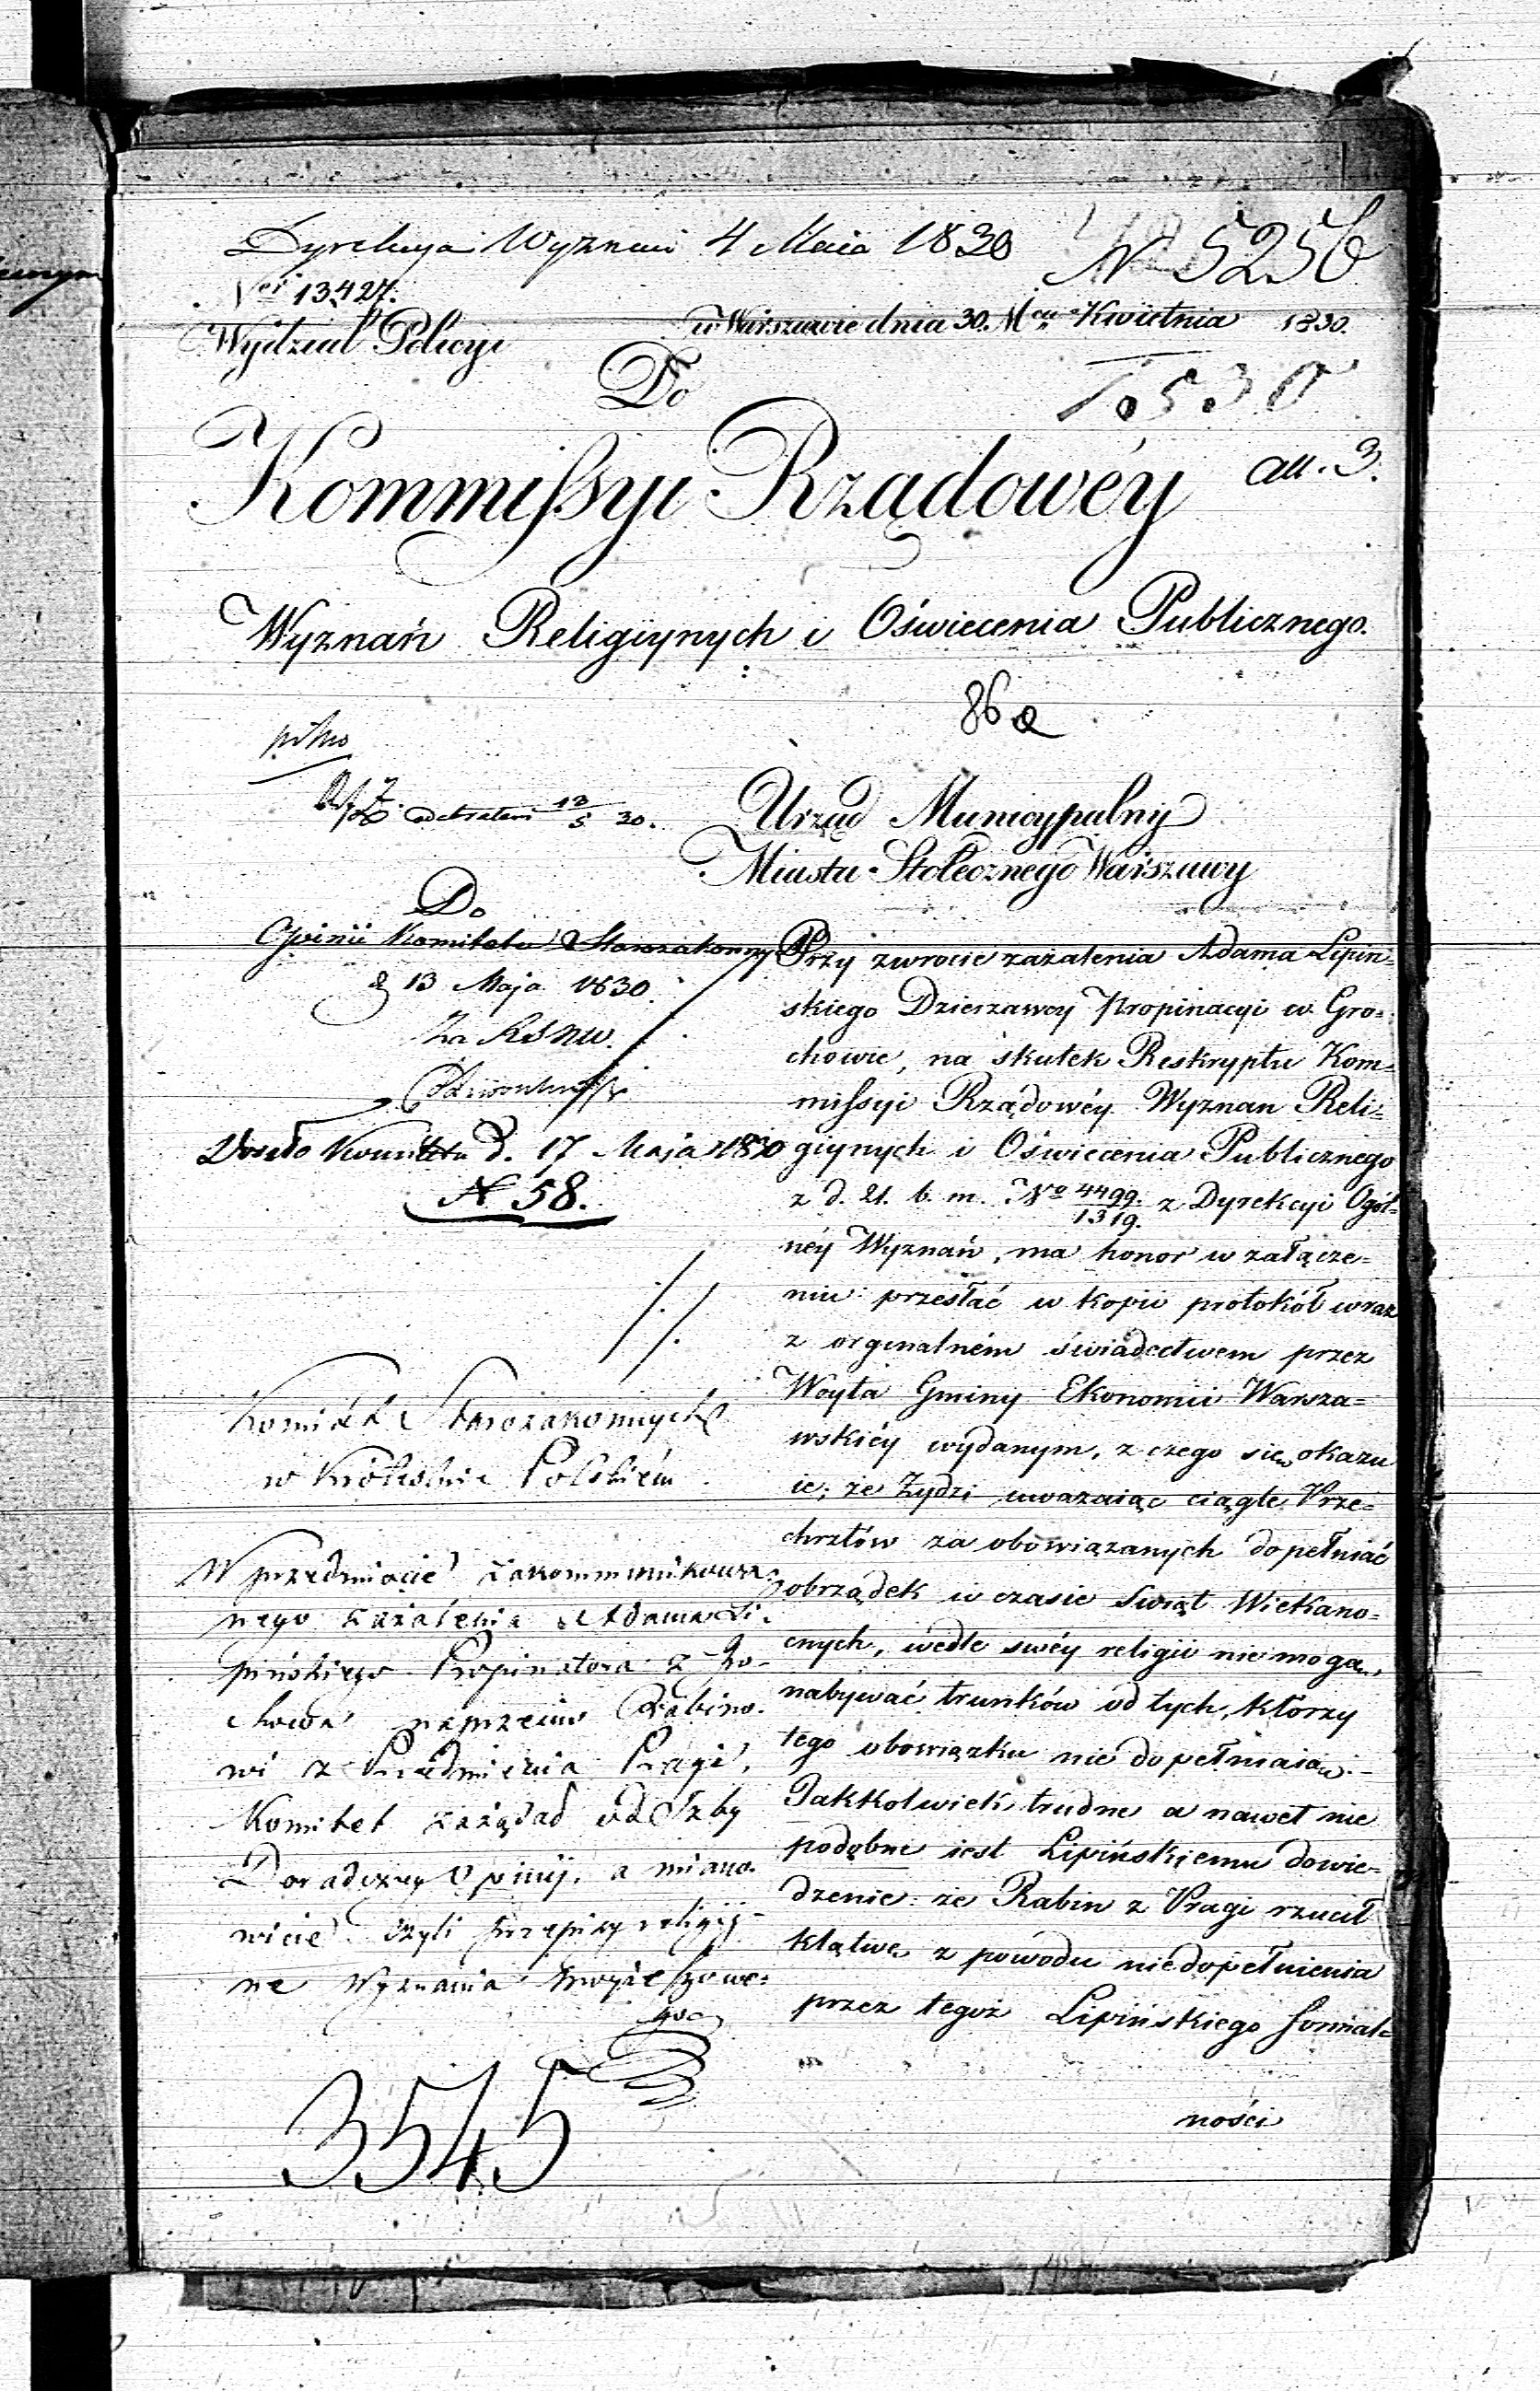 Dyrekcya Wyznań 4 Maia 1830
N 5256
Nei 13427.
w Warszawie dnia 30. Mca Kwietnia 1830.
Wydział Policyi
Do
Kommissyi Rządowéy
all. 3.
Wyznań Religiynych i Oświecenia Publicznego.
86 a
pilno
odebrałem 13/5 30.
Urząd Municypalny
Miasta Stołecznego Warszawy
Do
Opinii Komitetu Starozakonnych
d 13 Maja 1830.
Za
Weszło do Komitetu d. 17 Maja 1830
N 58.
Komitet Starozakonnych
w Królestwie Polskiém
W przedmiocie zakommunikowa-
nego zażalenia Adama Li-
pińskiego Propinatora z Gro-
chowa naprzeciw Rabino-
wi z Przedmieścia Pragi,
Komitet zażądał od Izby
Doradczey Opinij, a miano-
wicie czyli przepisy religij-
ne Wyznania Mojżeszowe-
go
3545
Przy zwrocie zażalenia Adama Lipiń-
skiego Dzierzawcy Propinacyi w Gro-
chowie, na skutek Reskryptu Kom-
missyi Rządowéy Wyznan Reli-
giynych i Oświecenia Publicznego
z d. 21. b. m. No 4499./1319. z Dyrekcyi Ogól-
néy Wyznań, ma honor w załącze-
niu przesłać w kopii protokół wraz
z orginalném świadectwem przez
Woyta Gminy Ekonomii Warsza-
wskiéy wydanym, z czego się okazu
ie, że Żydzi uwazaiąc ciągle Prze-
chrztów za obowiązanych dopełniać
obrządek w czasie Swiąt Wielkano-
cnych, wedle swéy religii nie mogą
nabywać trunków od tych, którzy
tego obowiązku nie dopełniaią.-
Jakkolwiek trudne a nawet nie
podobne iest Lipińskiemu dowie-
dzenie że Rabin z Pragi rzucił
klątwę z powodu niedopełnienia
przez tegoż Lipińskiego formal-
ności